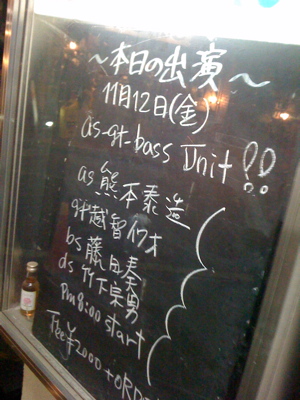 ～本日の出演～
11月12日(金)
as-gt-bass Unit!!
as 熊本泰造
gt 越智
bs 藤田奏
ds 竹下宗男
Pm8:00 start
Fee¥2000+ORD